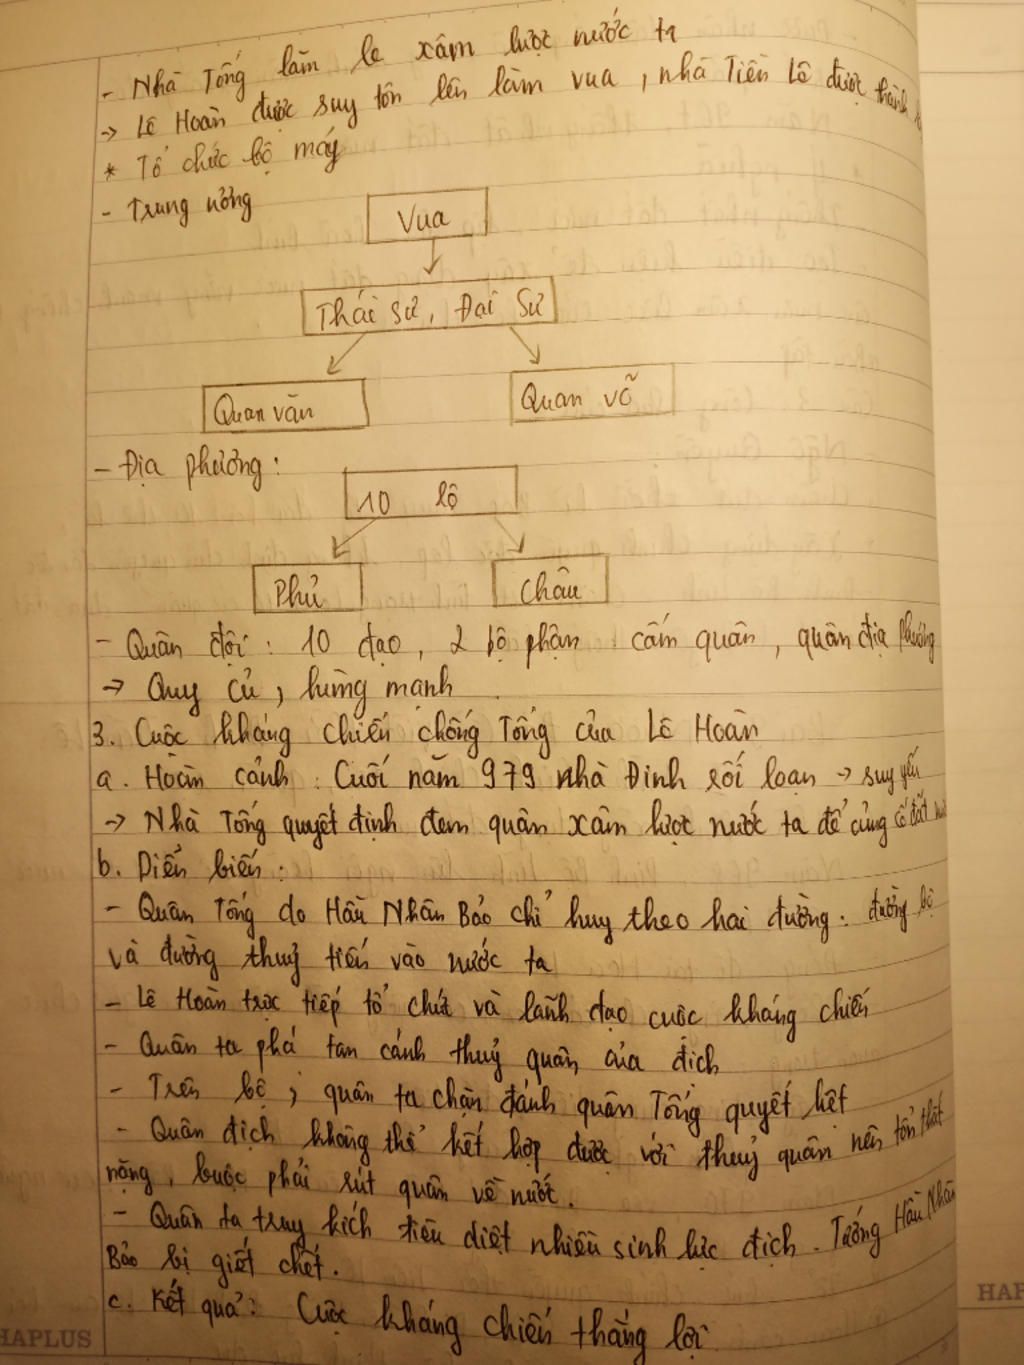 - Nhà Tống lăm le xâm lược nước ta
→ Lê Hoàn được suy tôn lên làm vua, nhà Tiền Lê được thành
* Tổ chức bộ máy
- Trung ương
Vua
Thái sư, Đại Sư
Quan văn
Quan võ
- Địa phương:
10 lộ
Phủ
Châu
- Quân đội: 10 đạo, 2 bộ phận: cấm quân, quân địa phương
→ Quy củ, hùng mạnh.
3. Cuộc kháng chiến chống Tống của Lê Hoàn
a. Hoàn cảnh: Cuối năm 979 nhà Đinh rối loạn → suy yếu
→ Nhà Tống quyết định đem quân xâm lược nước ta để củng cố đất
b. Diễn biến:
- Quân Tống do Hầu Nhân Bảo chỉ huy theo hai đường: đường bộ
và đường thuỷ tiến vào nước ta
- Lê Hoàn trực tiếp tổ chức và lãnh đạo cuộc kháng chiến
- Quân ta phá tan cánh thuỷ quân của địch
- Trên bộ, quân ta chặn đánh quân Tống quyết liệt
- Quân địch không thể kết hợp được với thuỷ quân nên tổn thất
nặng, buộc phải rút quân về nước.
- Quân ta truy kích tiêu diệt nhiều sinh lực địch. Tướng Hầu Nhân
Bảo bị giết chết.
c. Kết quả: Cuộc kháng chiến thắng lợi
HAPLUS
HAP